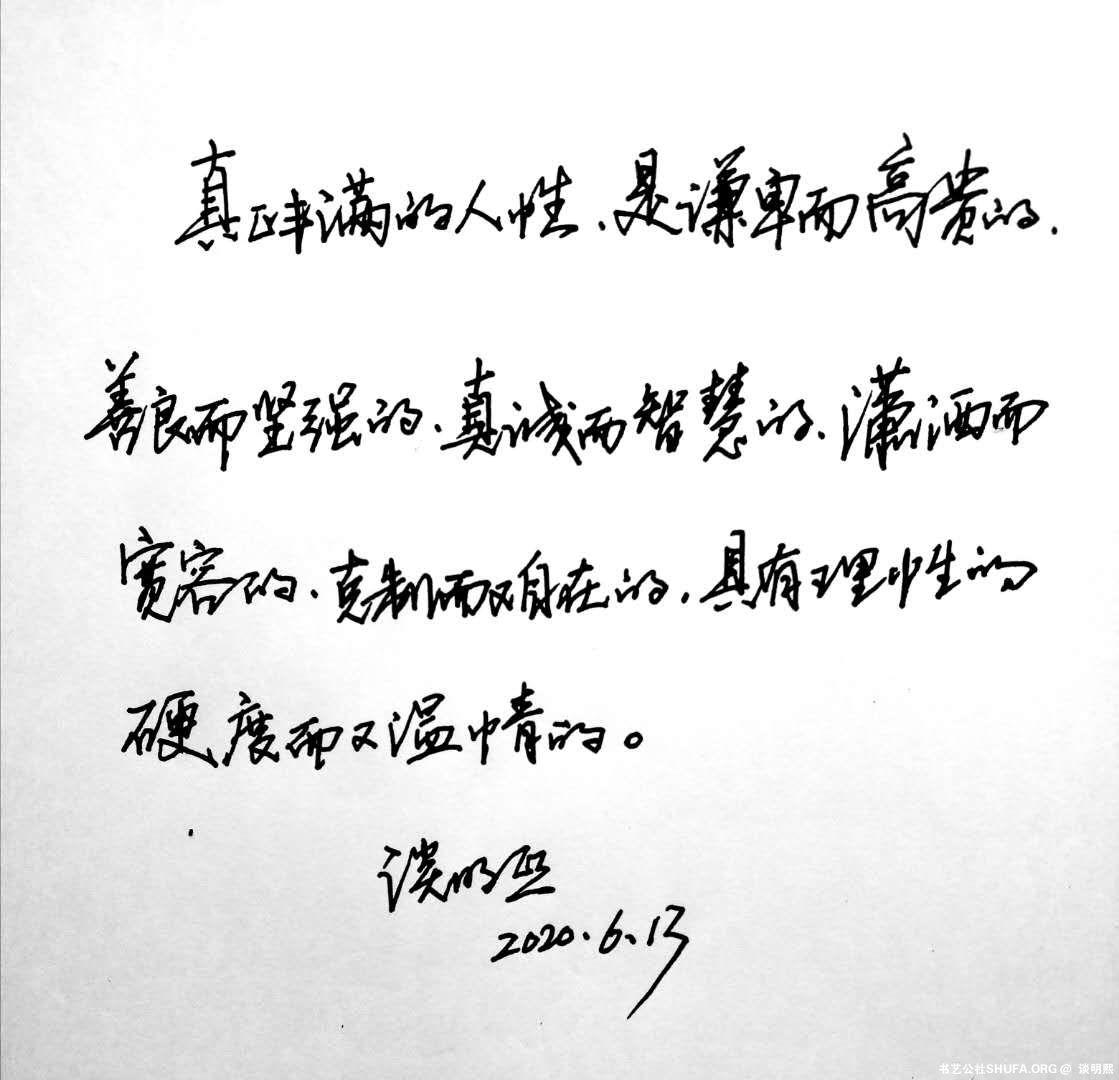 真正丰满的人性、是谦卑而高贵的、
善良而坚强的、真诚而智慧的、潇洒而
宽容的、克制而又自在的、具有理性的
硬度而又温情的。
谈明熙
2020.6.13
书艺公社SHUFA.ORG @ 谈明熙